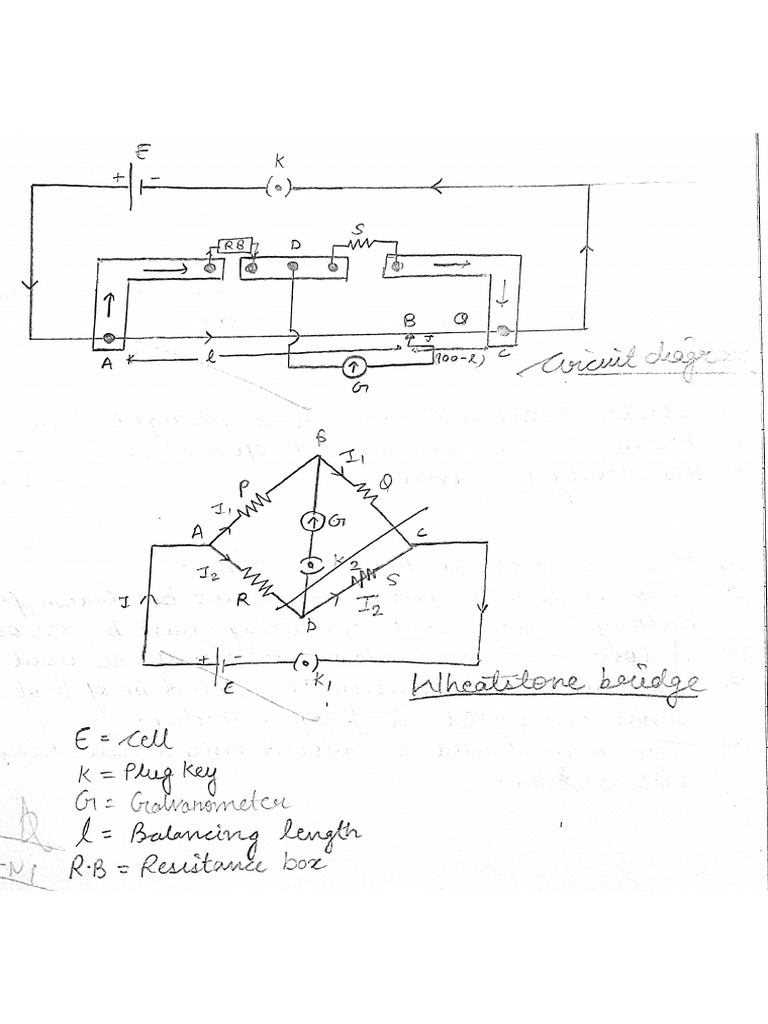 E
K
+ -
RB D S
B Q
A K l J (100-l) C
G
Circuit diagram
B
I1
P Q
I1
A G C
K2
I2 S
R I2
I D
+ -
E K1
Wheatstone bridge
E = Cell
K = Plug Key
G = Galvanometer
l = Balancing length
R.B = Resistance box